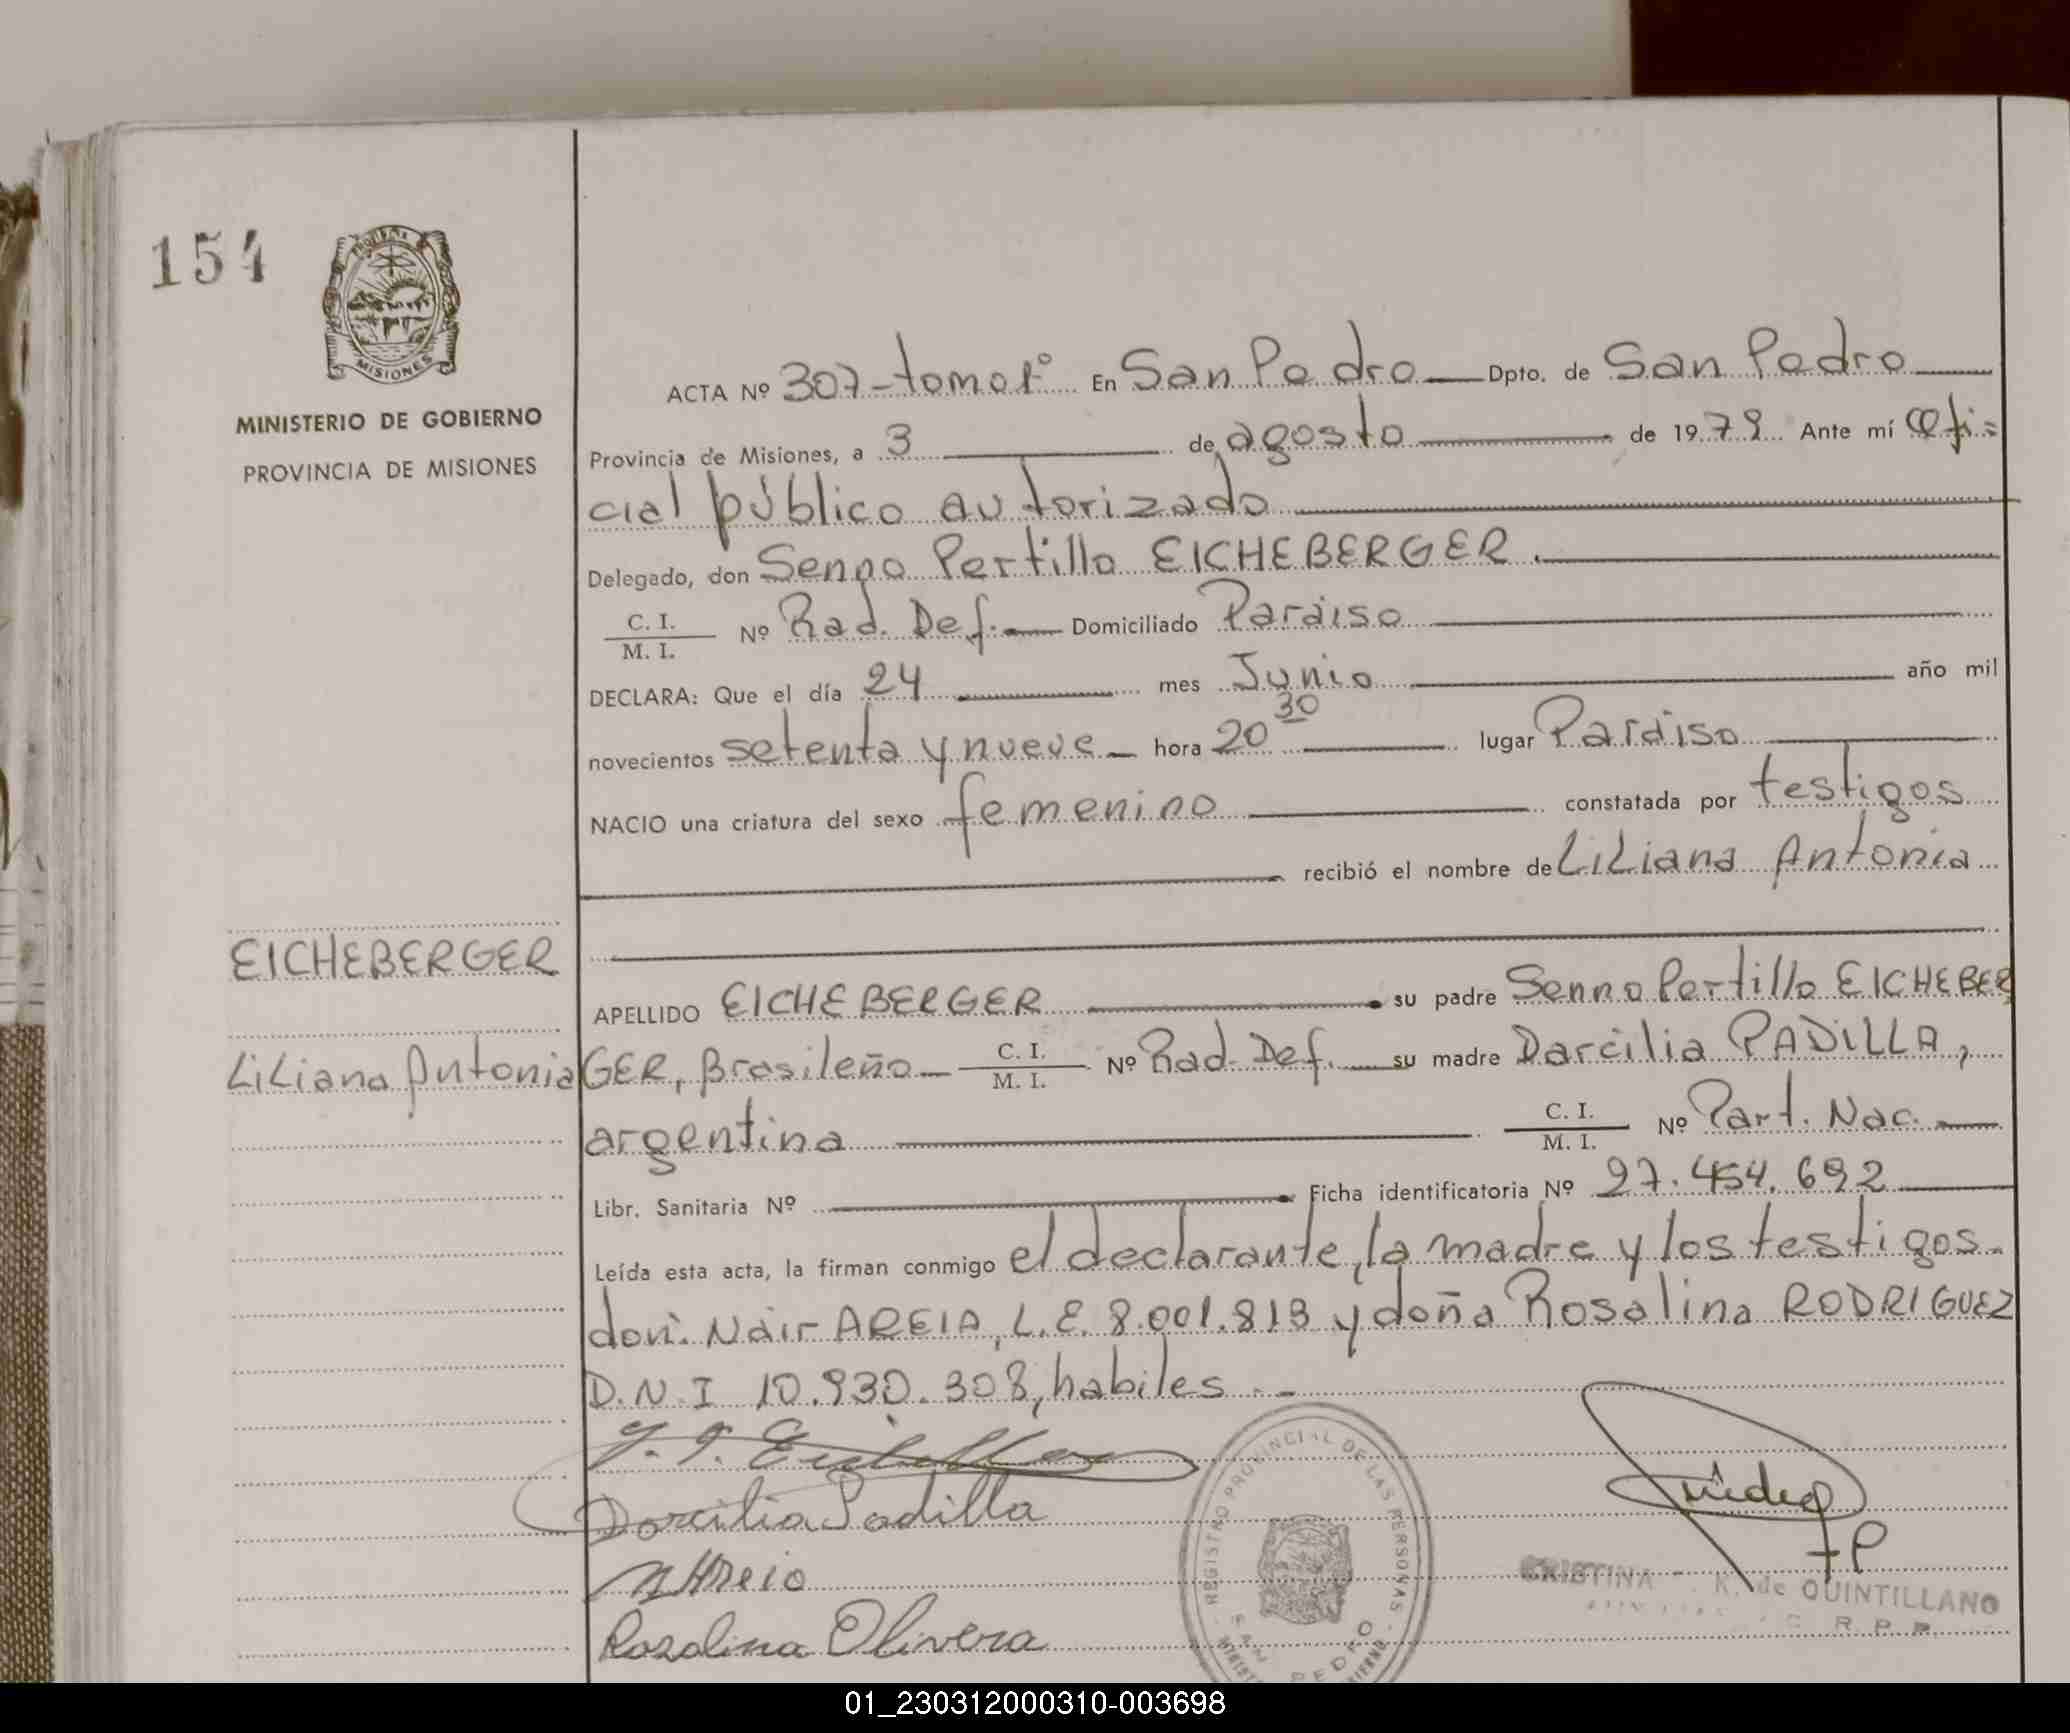 154
MISIONES
MINISTERIO DE GOBIERNO
PROVINCIA DE MISIONES
EICHEBERGER
LiLiana Antonia
ACTA Nº 307-tomo1º En San Pedro Dpto. de San Pedro
Provincia de Misiones, a 3 de agosto de 1979 Ante mí Ofi=
cial público autorizado
Delegado, don Senno Pertillo EICHEBERGER.
C. I.
M. I. Nº Rad. Def. Domiciliado Paraiso
DECLARA: Que el día 24 mes Junio año mil
novecientos setenta y nueve hora 20 30 lugar Paraiso
NACIO una criatura del sexo femenino constatada por testigos
recibió el nombre de LiLiana Antonia
APELLIDO EICHEBERGER su padre Senno Pertillo EICHEBER
GER, Brasileño C. I.
M. I. Nº Rad. Def. su madre Darcilia PADiLLA,
argentina C. I.
M. I. Nº Part. Nac.
Libr. Sanitaria Nº Ficha identificatoria Nº 27.454.692
Leída esta acta, la firman conmigo el declarante, la madre y los testigos.
don: Nair AREIA, L.E. 8.001.813 y doña Rosalina RODRIGUEZ
D.N.I 10.930.308, habiles.-
Darcilia Padilla
Rosalina Olivera
REGISTRO PROVINCIAL DE LAS PERSONAS
SAN PEDRO
CRISTINA K. de QUINTILLANO
R. P. P.
01_230312000310-003698